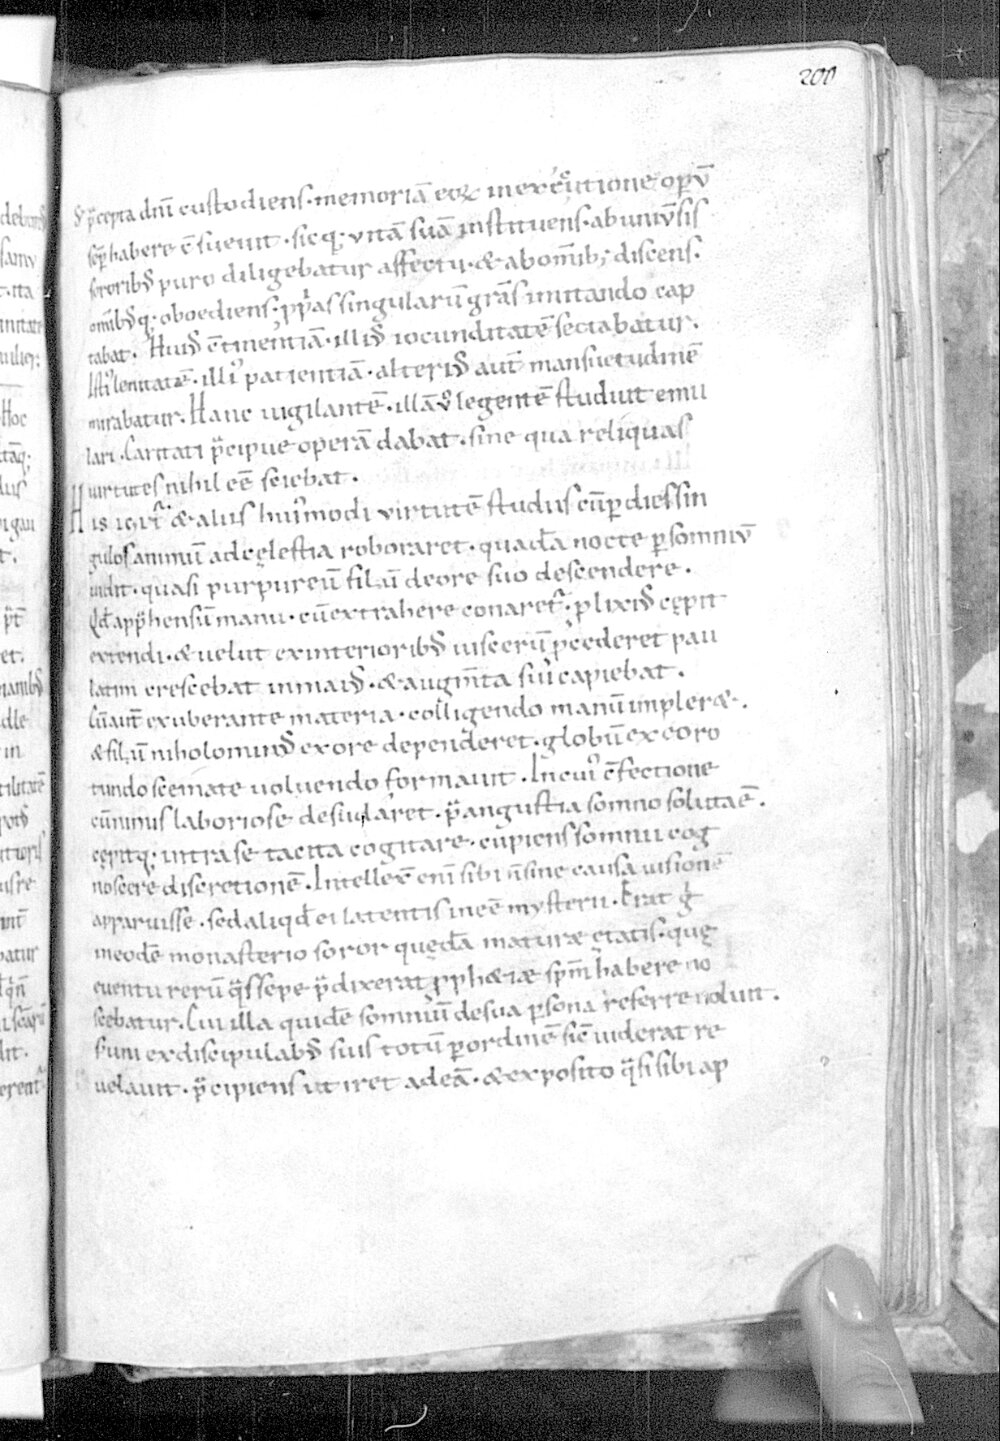 200
p̄cepta dn̄i custodiens · memoriā eoꝝ in exequutione operū
semp habere c̄sueuit · sicq; uitā suā instituens · ab uniuersis
sororib; puro diligebatur affectu · & ab omib; discens ·
omib;q; oboediens · p̄pas singularū gr̄as imitando cap
tabat · Hui; c̄tinentiā · illi; iocunditatē sectabatur ·
Isti; lenitatē · illi; patientiā · alteri; aut̄ mansuetudinē
mirabatur · Hanc uigilantē · illā u° legentē studuit emu
lari · Caritati p̄cipue operā dabat · sine qua reliquas
uirtutes nihil ēē sciebat ·
His igit̄ & aliis hui;modi virtutē studiis cū p dies sin
gulos animū ad cęlestia roboraret · quadā nocte p somniū
uidit · quasi purpureū filū de ore suo descendere ·
Qd̄ app̄hensū manu · cū extrahere conaret̄ · plixi; cępit
extendi · & uelut ex interiorib; uiscerū pcederet pau
latim crescebat in mai; · & augm̄ta sui capiebat ·
Cū aut̄ exuberante materia · colligendo manū impler& ·
& filū nihilomin; ex ore dependeret · globū ex eo ro
tundo scemate uoluendo formauit · In cui; c̄fectione
cū nimis laboriose desudaret · p̄ angustia somno soluta ē ·
cępitq; intra se tacita cogitare · cupiens somnii cog
noscere discretionē · Intellexit eni sibi n̄ sine causa uisionē
apparuisse · sed aliqd̄ ei latentis ineē mysterii · Erat g°
in eodē monasterio soror quędā maturæ ętatis · quę
euentu rerū q̄ sępe p̄dixerat pph&iæ spm̄ habere no
scebatur · Cui illa quidē somniū de sua psona referre noluit ·
s; uni ex discipulab; suis totū p ordinē sic uiderat re
uelauit · p̄cipiens ut iret ad eā · & exposito q̄si sibi ap